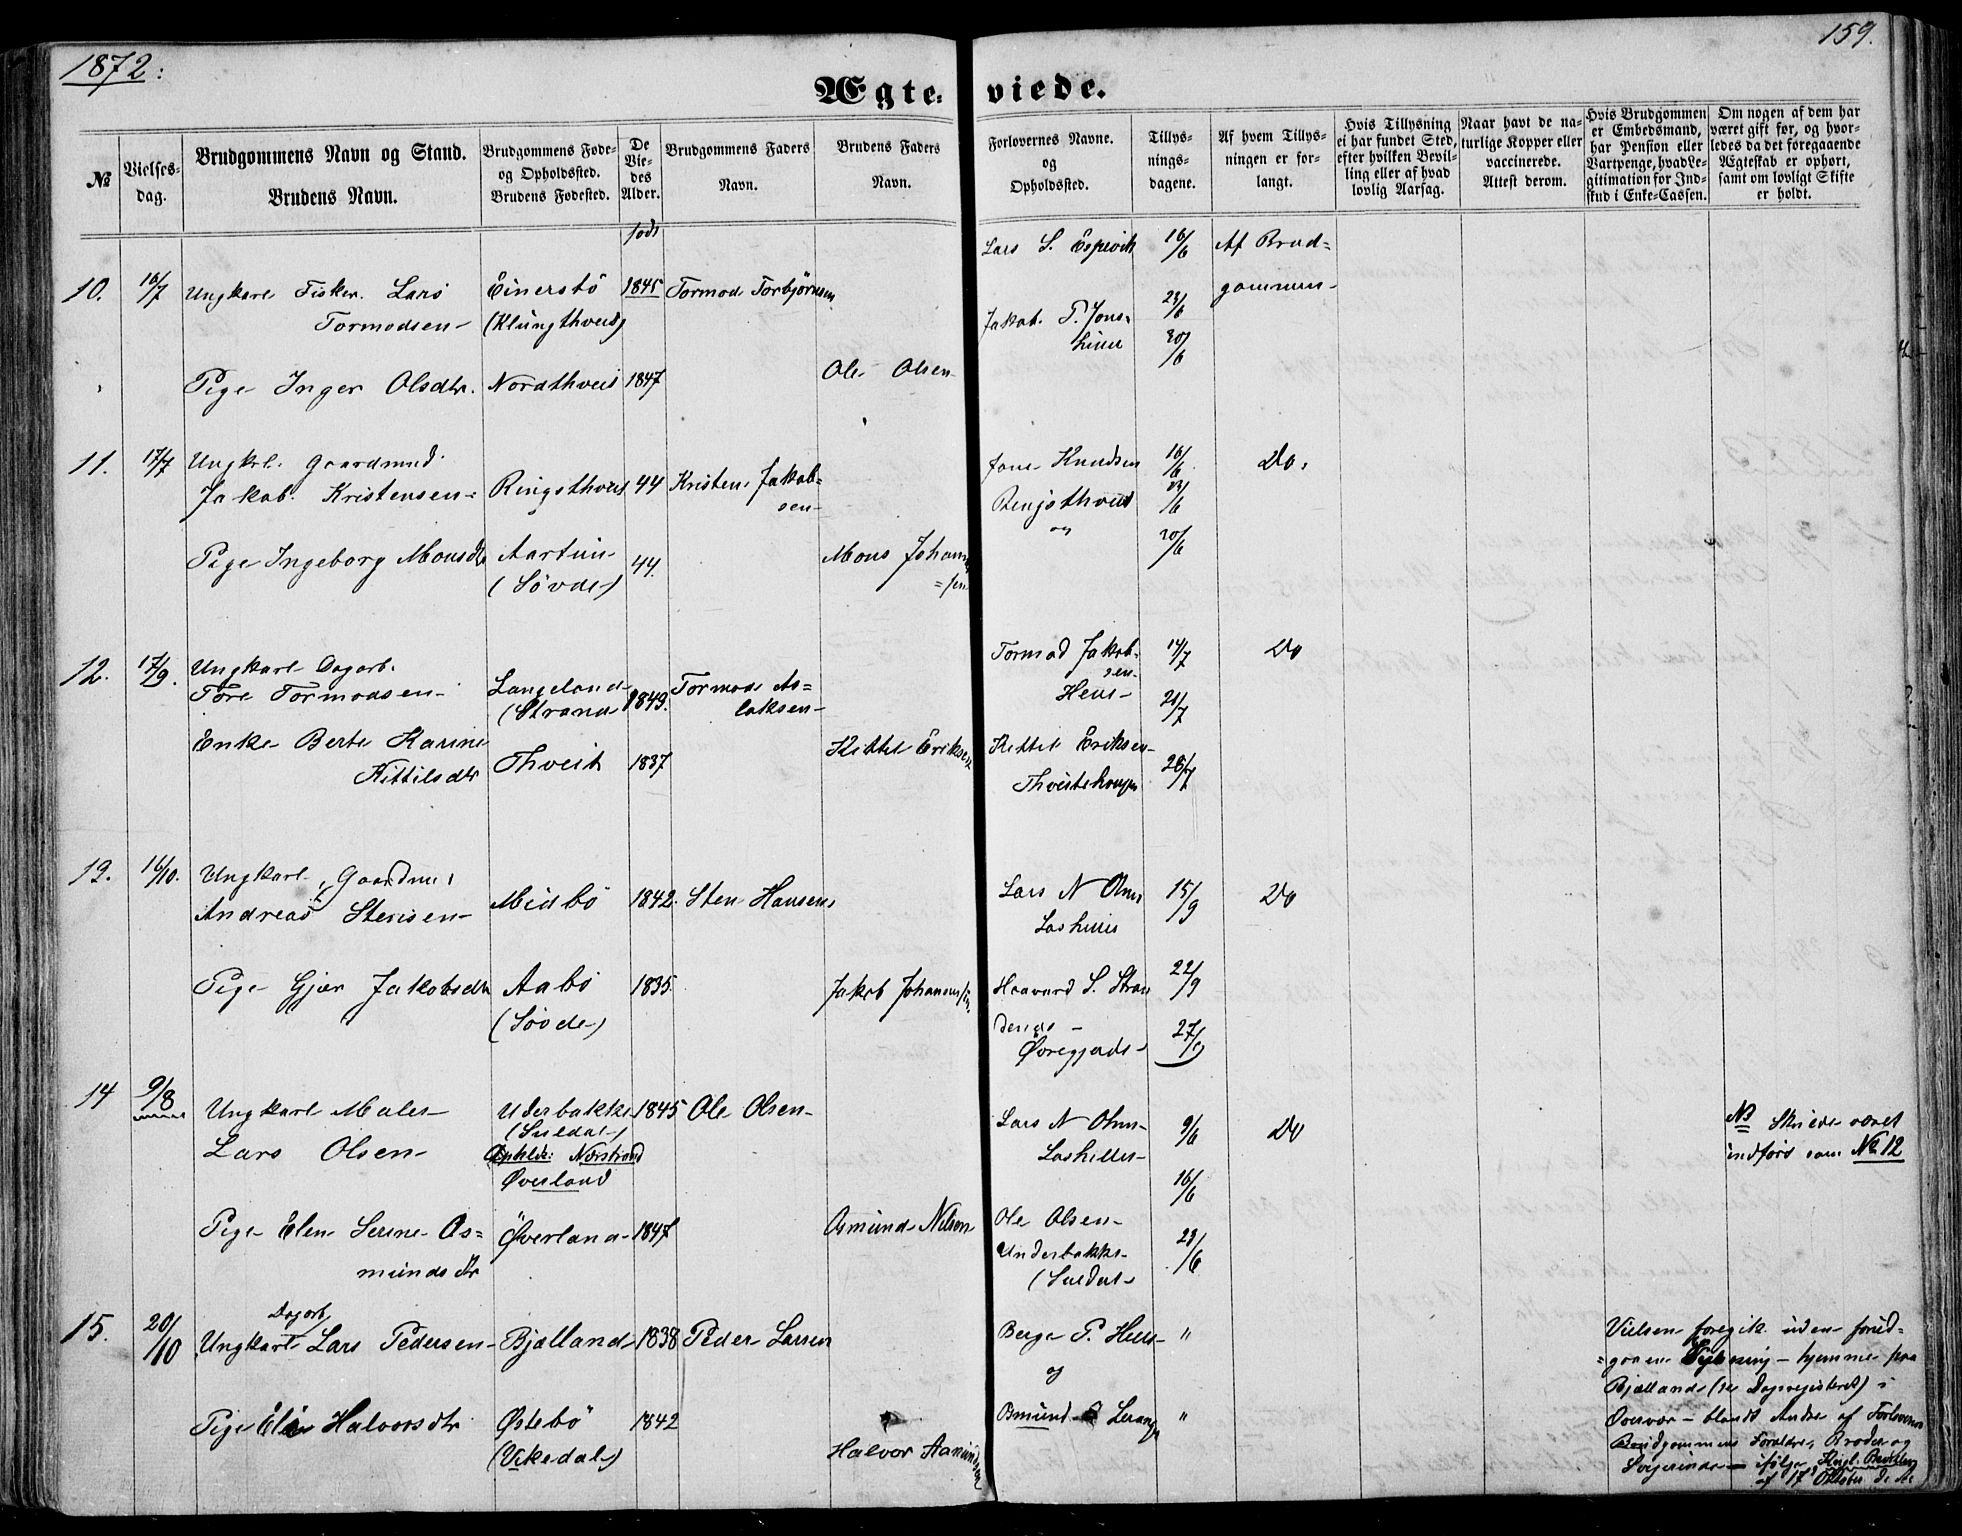 1872:
159.
Ægte=
viede.
№
Vielses=
dag.
Brudgommens Navn og Stand.
Brudens Navn.
Brudgommens Føde=
og Opholdssted.
Brudens Fødested.
De
Vie=
des
Alder.
Brudgommens Faders
Navn.
Brudens Faders
Navn.
Forlovernes Navne.
og
Opholdssted.
Tillys=
nings=
dagene.
Af hvem Tillys=
ningen er for=
langt.
Hvis Tillysning
ei har fundet Sted,
efter hvilken Bevil=
ling eller af hvad
lovlig Aarsag.
Naar havt de na=
turlige Kopper eller
vaccinerede.
Attest derom.
Hvis Brudgommen
er Embedsmand,
har Pension eller
Vartpenge, hvad Le=
gitimation for Ind=
skud i Enke=Cassen.
Om nogen af dem har
været gift før, og hvor=
ledes da det foregaaende
Ægteskab er ophørt,
samt om lovligt Skifte
er holdt.
født
10. 16/7 Ungkarl Fisker. Lars
Tormodsen
Einerstö
(Klungthveit)
1845
Tormod Torbjörnsen
Lars S. Espevik
Jakob P. Jons=
16/6
23/6
30/6
Af Brud=
gommen
Pige Inger Olsdtr. Nordthveit 1847
Ole Olsen
11. 17/7 Ungkrl. Gaardmd.
Jakob Kristensen
Ringsthveit 44 Kristen Jakob=
sen
Jone Knudsen
og
16/6
23/6
30/6
Do.
Pige Ingeborg Monsdtr
(Søvde)
44.
Mons Johann=
=sen
12. 17/9. Ungkarl Dagarb.
Tore Tormodsen
Langeland
(Strand
1849.
Tormod As=
laksen
Tormod Jakob=
sen
Heus
14/7
21/7
Do
Enke Berte Karine
Kittilsdtr
Thveit 1837
Kittel Eriksen
Kittel Eriksen
28/7
13. 16/10. Ungkarl, Gaardm.
Andreas Stensen
Midbö 1842. Sten Hansen
Lars N Ohm
15/9
Do
Pige Gjør Jakobsdtr
Aabö
(Søvde)
1835
Jakob Johannssen
Haavard S. Stran
denes
Øvregjerde
22/9
27/9
14 9/8 Ungkarl Maler
Lars Olsen
Underbakke
(Suldal)
Opholds: Nærstrand
Øverland
1845 Ole Olsen
Lars N Ohm
9/6
16/6
Do
NB Skulde været
indført som № 12
Pige Elen Serine Os=
mundsdtr
Øverland 1847
Osmund Nilsen
Ole Olsen
Underbakke
(Suldal
23/6
15. 20/10 Dagarb
Ungkarl Lars Pedersen
Bjælland 1838 Peder Larsen
Berge P. Heus
og
"
Pige Eli Halvorsdtr
Østebö
(Vikedal)
1842
Halvor Aamundsen
"
Vielsen foregik uden forud=
=gaaen Lysning – hjemme paa
Bjælland (se Dagregisteret) i
Overvær – blandt Andre af Forlovernes
Brudgommens Forældre, Broder og
Svigerinde – ifølge Kngl. Bevilling
af 17 Oktober d. A.